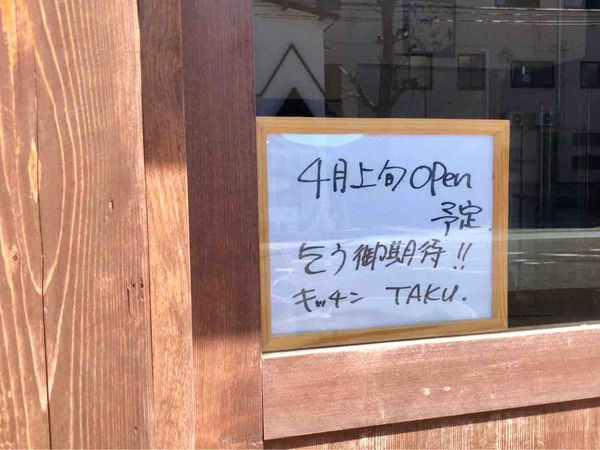 4月上旬 OPen
予定
乞う御期待!!
キッチン TAKU.